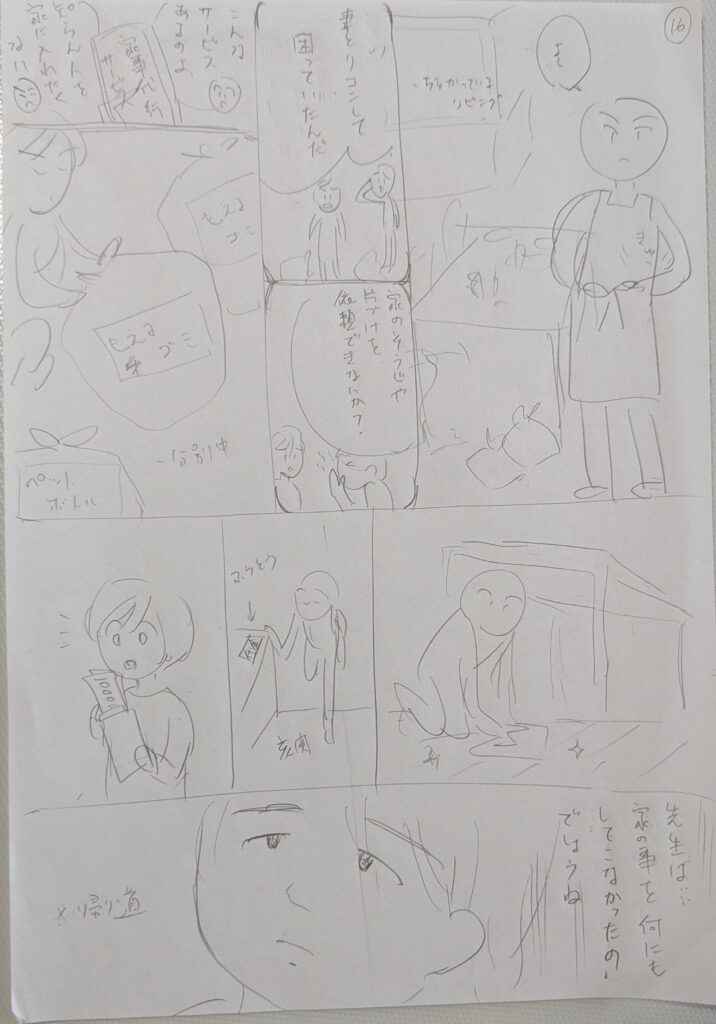 16
よし
ちらかっている
リビング
きゅっ
妻とリコンして
困っていたんだ
家のそうじや
片づけを
依頼できないか?
こんな
サービス
あるのよ
家事代行
サービス
知らん人を
家に入れたく
ない
もえる
ゴミ
もえる
ゴミ
分別中
ペット
ボトル
ふうとう
玄関
先生は…
家の事を何にも
してこなかったの
でしょうね
※帰り道